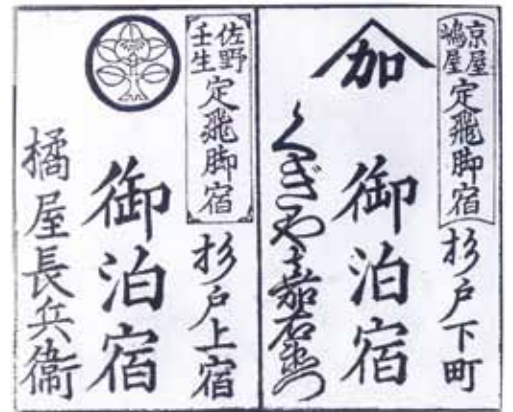 京屋
嶋屋
定飛脚宿
杉戸下町
加
御泊宿
くぎや嘉右衛門
佐野
壬生
定飛脚宿
杉戸上宿
御泊宿
橘屋長兵衛